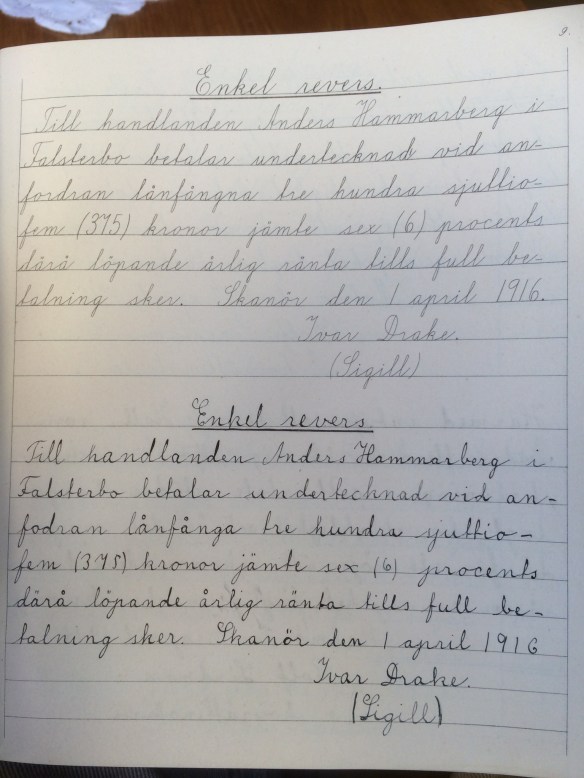 9.
Enkel revers.
Till handlanden Anders Hammarberg i
Falsterbo betalar undertecknad vid an-
fordran lånfångna tre hundra sjuttio-
fem (375) kronor jämte sex (6) procents
därå löpande årlig ränta tills full be-
talning sker. Skanör den 1 april 1916.
Ivar Drake.
(Sigill)
Enkel revers
Till handlanden Anders Hammarberg i
Falsterbo betalar undertecknad vid an-
fodran lånfånga tre hundra sjuttio-
fem (375) kronor jämte sex (6) procents
därå löpande årlig ränta tills full be-
talning sker. Skanör den 1 april 1916
Ivar Drake.
(Sigill)